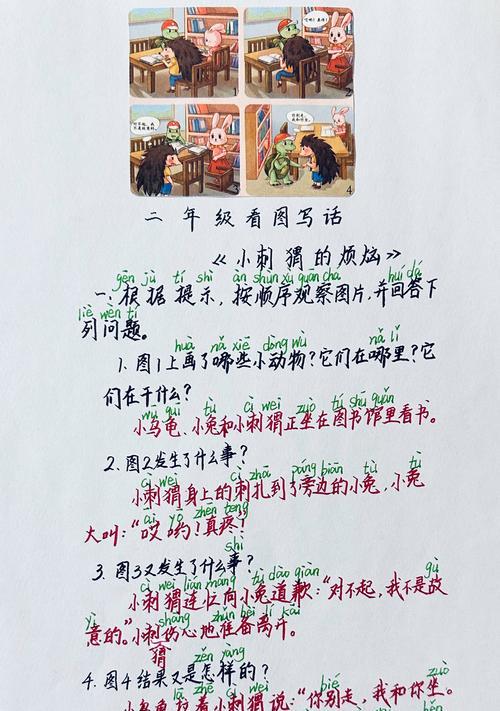 1
2
哎哟！真疼！
3
4
二年级看图写话
《小刺猬的烦恼》
gēn jù tí shì àn shùn xù guān chá huí dá
一、根据提示，按顺序观察图片，并回答下
liè wèn tí
列问题。
huà nǎ xiē dòng wù nǎ lǐ
1. 图1上画了哪些小动物？它们在哪里？它
们在干什么？
wū guī tù cì wei zuò tú shū guǎn
小乌龟、小兔和小刺猬正坐在图书馆里看书。
2. 图2发生了什么事？
cì wei cì zhā páng biān tù tù
小刺猬身上的刺扎到了旁边的小兔，小兔
āi yō zhēn téng
大叫：“哎哟！真疼！”
shì
3. 图3又发生了什么事？
cì wei lián máng tù dào qiàn gù
小刺猬连忙向小兔道歉：“对不起，我不是故
yì shāng zhǔn bèi lí kāi
意的。”小刺伤心地准备离开。
猬
zěn yàng
4. 图4结果又是怎样的？
bié zuò
小乌龟拉着小刺猬说：“你别走，我和你坐。